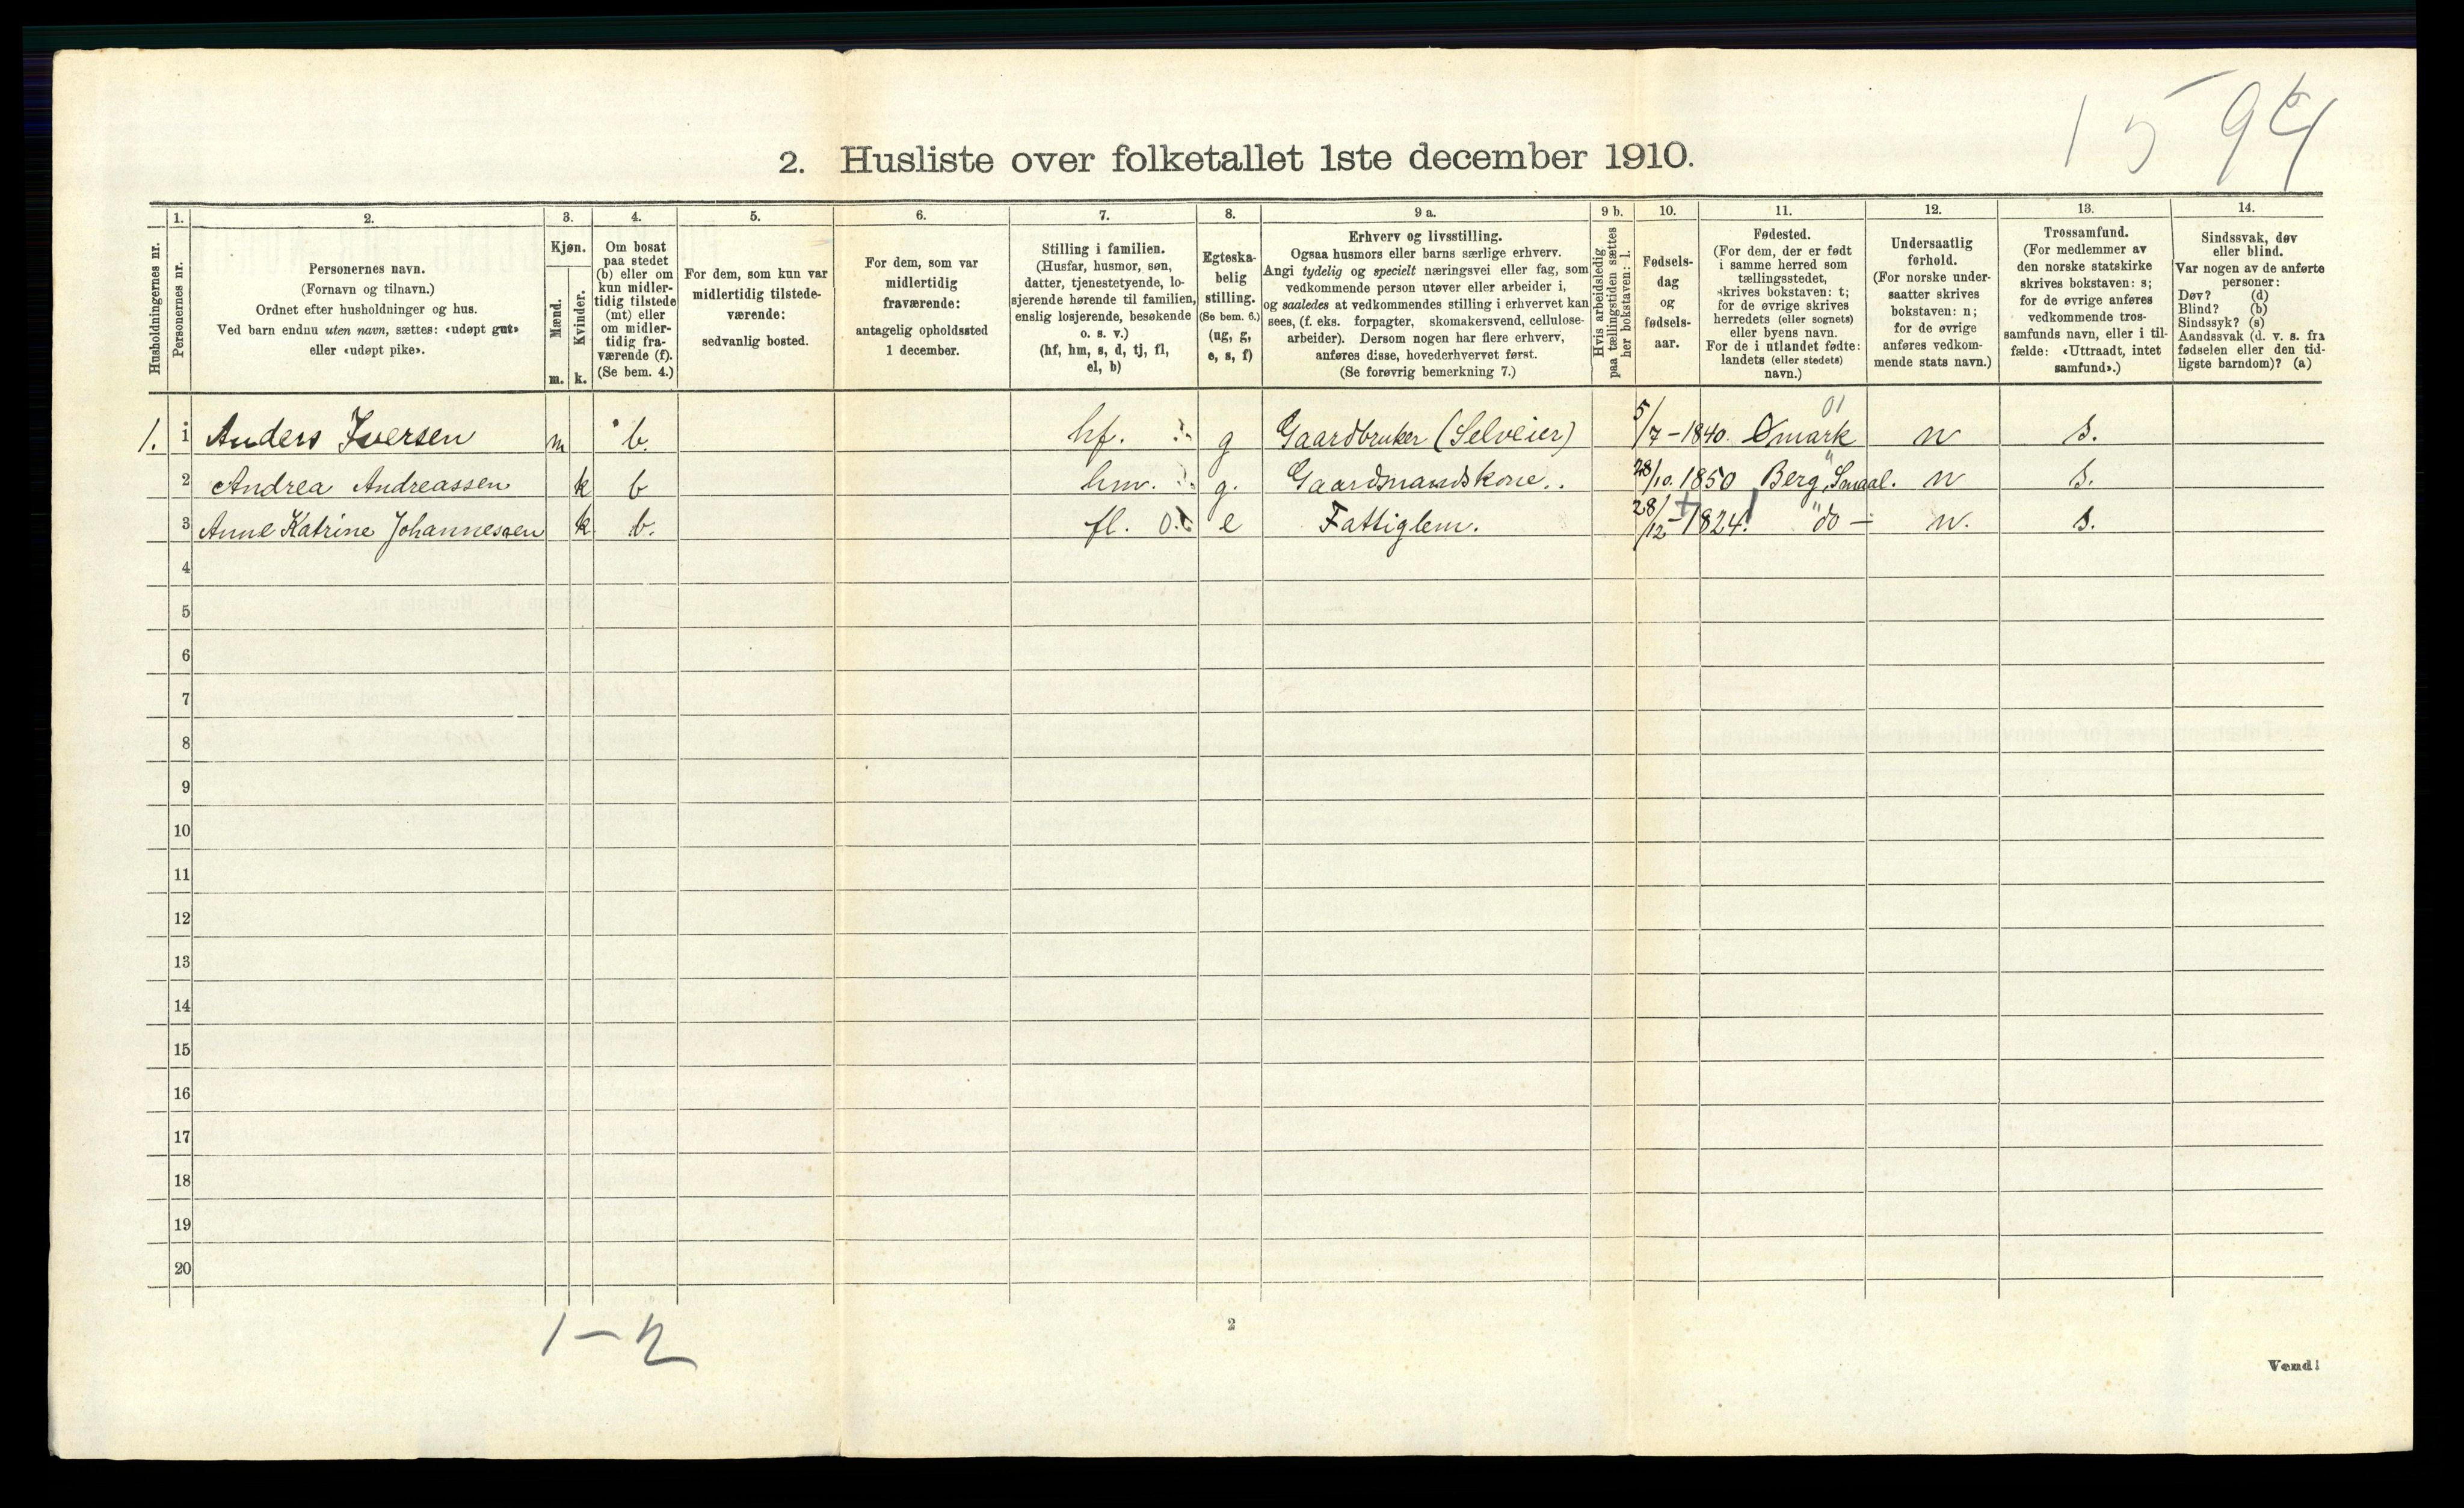 1594
2. Husliste over folketallet 1ste december 1910.
1. 2. 3. 4. 5. 6. 7. 8. 9 a. 9 b. 10. 11. 12. 13. 14.
Husholdningernes nr.
Personernes nr.
Personernes navn.
(Fornavn og tilnavn.)
Ordnet efter husholdninger og hus.
Ved barn endnu uten navn, sættes: «udøpt gut»
eller «udøpt pike».
Kjøn.
Mænd.
Kvinder.
m. k.
Om bosat
paa stedet
(b) eller om
kun midler-
tidig tilstede
(mt) eller
om midler-
tidig fra-
værende (f).
(Se bem. 4.)
For dem, som kun var
midlertidig tilstede-
værende:
sedvanlig bosted.
For dem, som var
midlertidig
fraværende:
antagelig opholdssted
1 december.
Stilling i familien.
(Husfar, husmor, søn,
datter, tjenestetyende, lo-
sjerende hørende til familien,
enslig losjerende, besøkende
o. s. v.)
(hf, hm, s, d, tj, fl,
el, b)
Egteska-
belig
stilling.
(Se bem. 6.)
(ug, g,
e, s, f)
Erhverv og livsstilling.
Ogsaa husmors eller barns særlige erhverv.
Angi tydelig og specielt næringsvei eller fag, som
vedkommende person utøver eller arbeider i,
og saaledes at vedkommendes stilling i erhvervet kan
sees, (f. eks. forpagter, skomakersvend, cellulose-
arbeider). Dersom nogen har flere erhverv,
anføres disse, hovederhvervet først.
(Se forøvrig bemerkning 7.)
Hvis arbeidsledig
paa tællingstiden sættes
her bokstaven: l.
Fødsels-
dag
og
fødsels-
aar.
Fødested.
(For dem, der er født
i samme herred som
tællingsstedet,
skrives bokstaven: t;
for de øvrige skrives
herredets (eller sognets)
eller byens navn.
For de i utlandet fødte:
landets (eller stedets)
navn.)
Undersaatlig
forhold.
(For norske under-
saatter skrives
bokstaven: n;
for de øvrige
anføres vedkom-
mende stats navn.)
Trossamfund.
(For medlemmer av
den norske statskirke
skrives bokstaven: s;
for de øvrige anføres
vedkommende tros-
samfunds navn, eller i til-
fælde: «Uttraadt, intet
samfund».)
Sindssvak, døv
eller blind.
Var nogen av de anførte
personer:
Døv? (d)
Blind? (b)
Sindssyk? (s)
Aandssvak (d. v. s. fra
fødselen eller den tid-
ligste barndom)? (a)
01
1. 1 Anders Iversen m b. hf. g Gaardbruker (Selveier) 5/7-1840. Ømark n s.
2 Andrea Andreassen k b hm. g. Gaardsmandskone.. 28/10. 1850 Berg, Smaal. n s.
3 Anne Katrine Johannessen k b. fl. e Fattiglem. 28/12-1824. "do - n. s.
4
5
6
7
8
9
10
11
12
13
14
15
16
17
18
19
20
1-2
2
Vend!